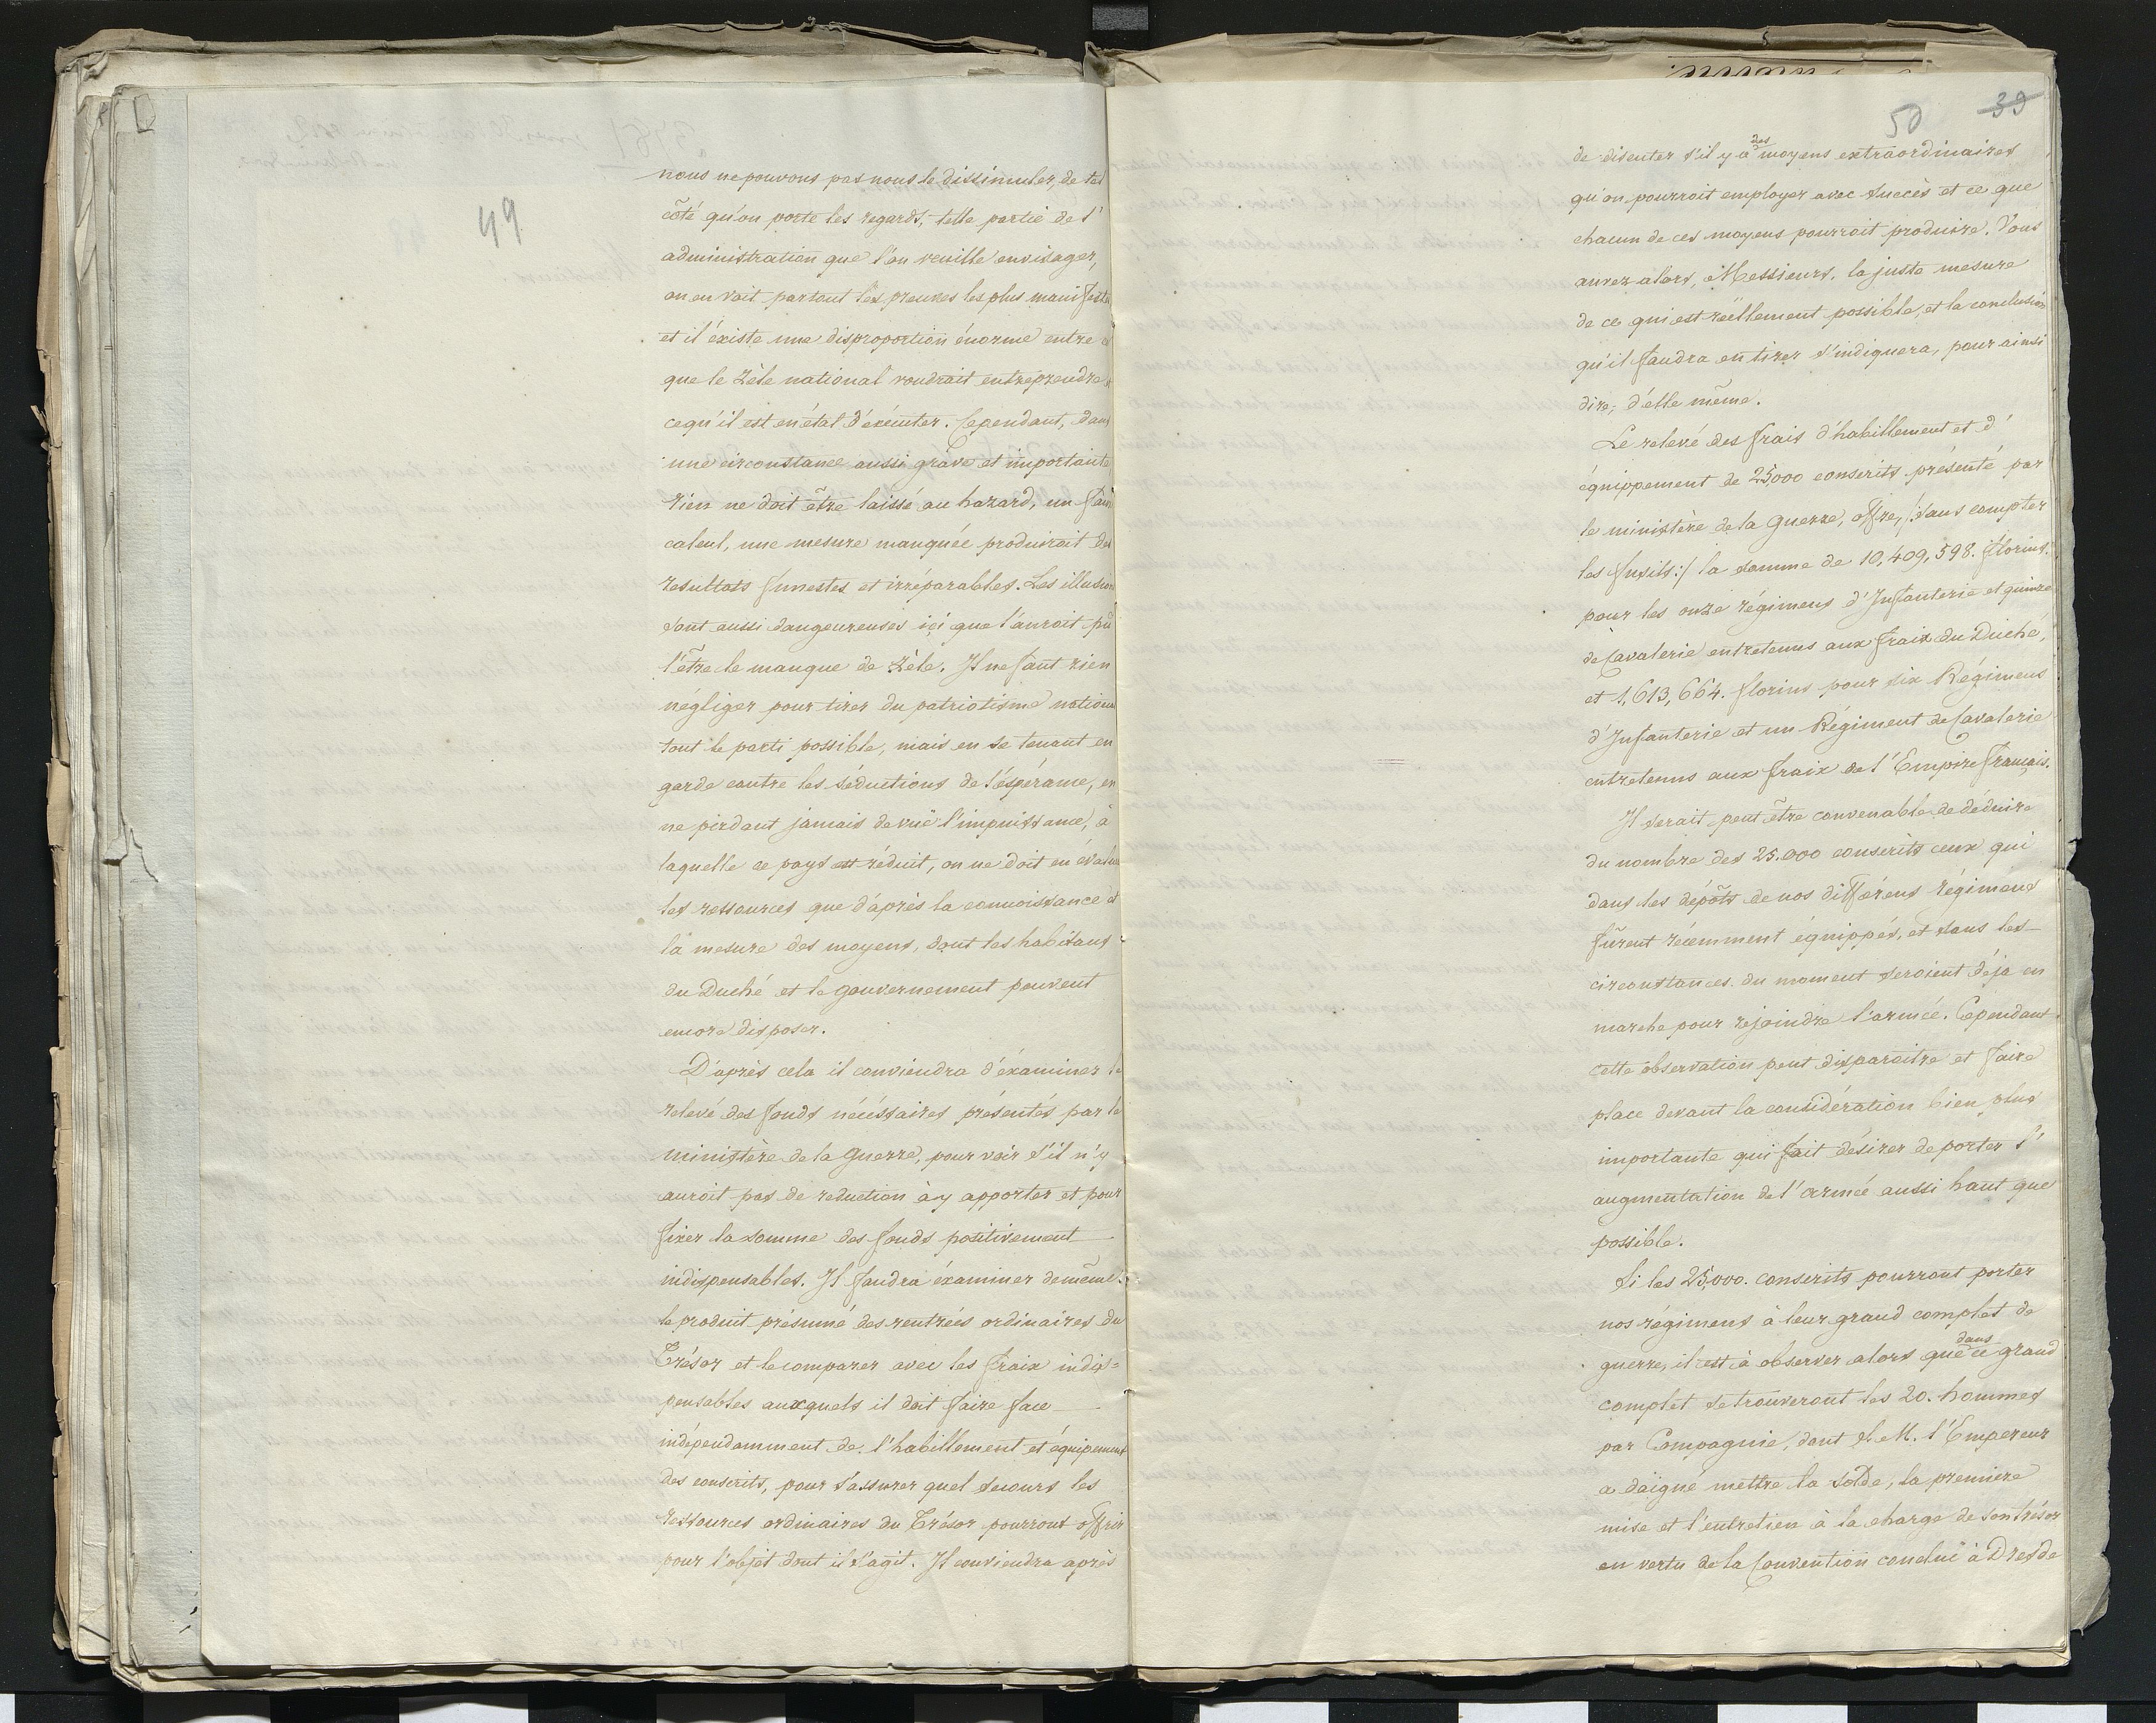 49
nous ne pouvons pas nous le dissimuler, de tel
côté qu'on porte les regards, telle partie de l'
administration que l'on veuille envisager,
on en voit partout les preuves les plus manifestes
et il éxiste une disproportion énorme entre ce
que le zèle national voudrait entreprendre et
ce qu'il est en état d'exécuter. Cependant, dans
une circonstance aussi grave et importante
rien ne doit être laissé au hazard, un faux
calcul, une mesure manquée produiroit des
resultats funestes et irréparables. Les illusions
sont aussi dangeureuses ici que l'auroit pû
l'être le manque de zèle. Il ne faut rien
négliger pour tirer du patriotisme national
tout le parti possible, mais en se tenant en
garde contre les séductions de l'éspérance, en
ne perdant jamais de vuë l'impuissance, à
laquelle ce pays est réduit, on ne doit en évaluer
les ressources que d'après la connoissance et
la mesure des moyens, dont les habitans
du Duché et le gouvernement peuvent
encore disposer.
D'après cela il conviendra d'éxaminer le
relevé des fonds nécéssaires présentés par le
ministère de la Guerre, pour voir s'il n'y
auroit pas de reduction à y apporter et pour
fixer la somme des fonds positivement
indispensables. Il faudra éxaminer de même
le produit présumé des rentrées ordinaires du
Trésor et le comparer avec les fraix indis=
pensables auxquels il doit faire face
indépendamment de l'habillement et équipement
des conscrits, pour s'assurer quel secours les
ressources ordinaires du Trésor pourront offrir
pour l'objet dont il s'agit. Il conviendra après
50 39
de discuter s'il y a des moyens extraordinaires
qu'on pourroit employer avec succès et ce que
chacun de ces moyens pourroit produire. Vous
aurez alors, Messieurs, la juste mesure
de ce qui est réellement possible, et la conclusion
qu'il faudra en tirer s'indiquera, pour ainsi
dire, d'elle même.
Le relevé des frais d'habillement et d'
équippement de 25000 conscrits présenté par
le ministère de la Guerre, offre, /:sans compter
les fusils:/ la somme de 10,409,598. florins.
pour les onze régimens d'Infanterie et quinze
de Cavalerie entretenus aux fraix du Duché,
et 1,613,664. florins pour six Régimens
d'Infanterie et un Régiment de Cavalerie
entretenus aux fraix de l'Empire français.
Il serait peut être convenable de déduire
du nombre des 25.000 conscrits ceux qui
dans les dépôts de nos différens régimens
fûrent récemment équippés, et sans les
circonstances du moment seroient déja en
marche pour rejoindre l'armée. Cependant
cette observation peut disparaitre et faire
place devant la considération bien plus
importante qui fait désirer de porter l'
augmentation de l'armée aussi haut que
possible.
Si les 25,000. conscrits pourront porter
nos régimens à leur grand complet de
guerre, il est à observer alors que dans ce grand
complet se trouveront les 20. hommes
par Compagnie, dont S. M. l'Empereur
a daigné mettre la solde, la premiere
mise et l'entretien à la charge de son trésor
en vertu de la Convention concluë à Dresde